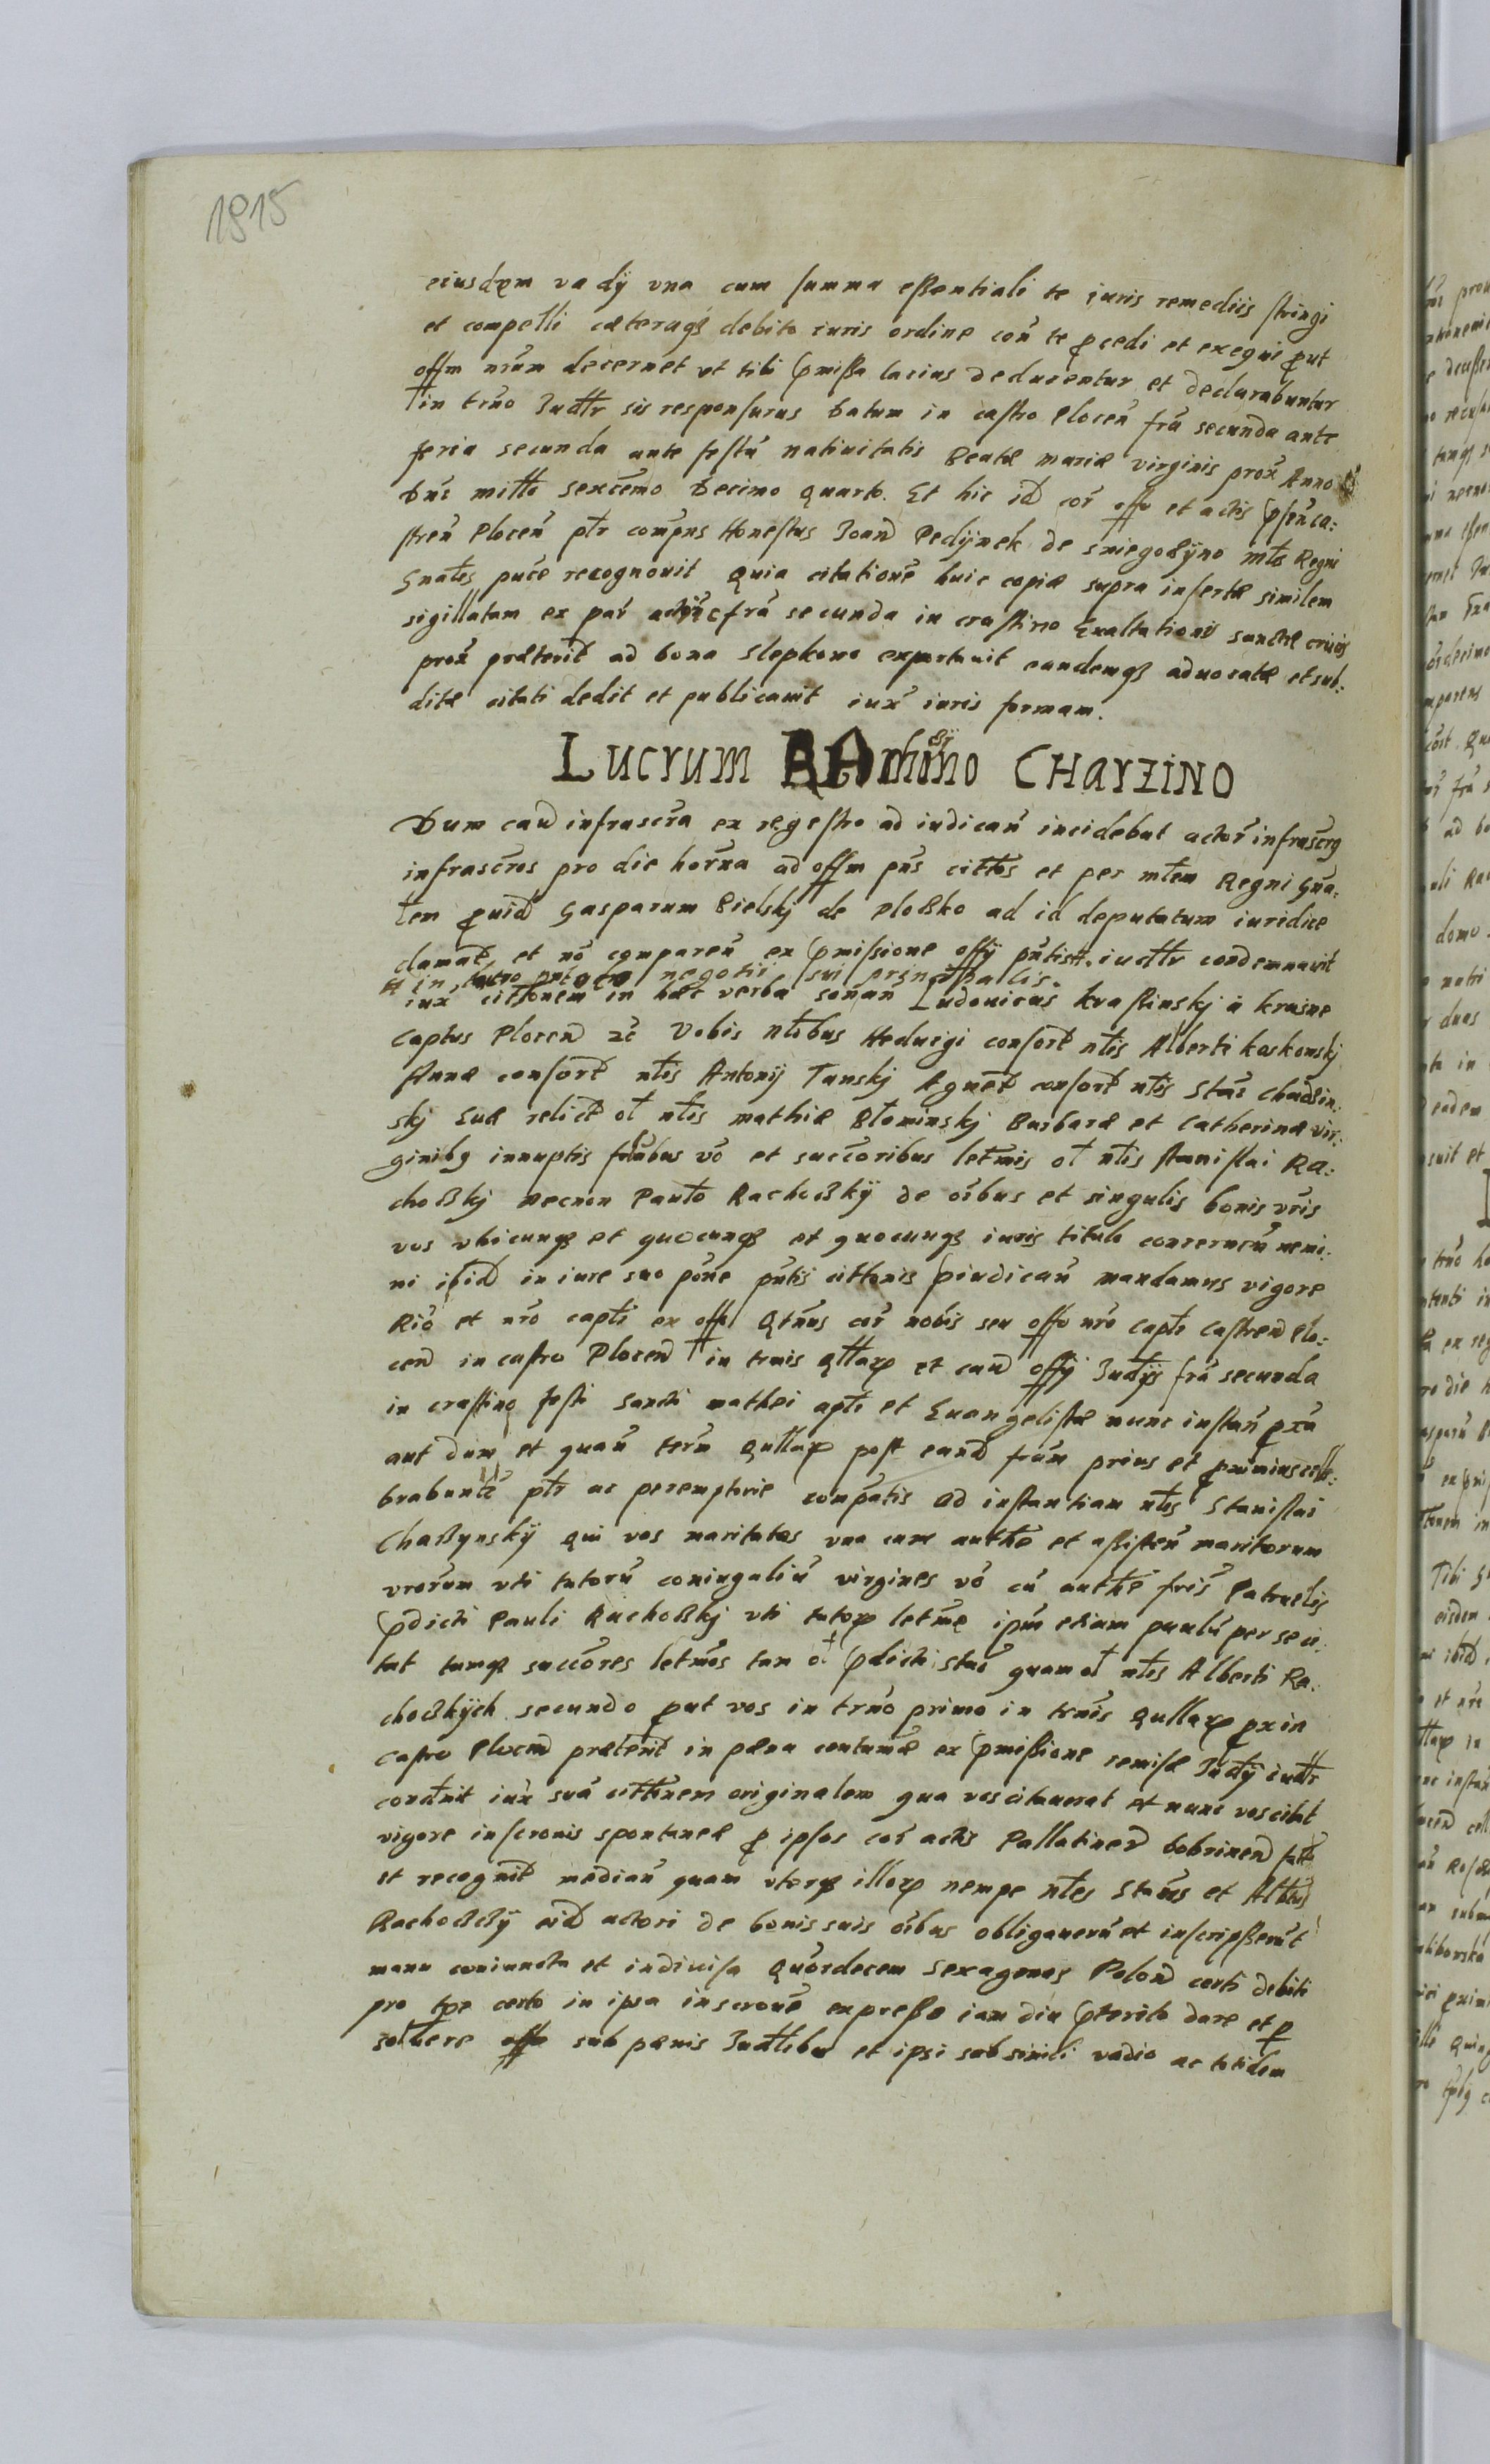 1815
eiusdem vadÿ vna cum summa essentiali te iuris remediis stringi
et compelli cæteraqȝ debito iuris ordine coñ te ꝓcedi et exequi ꝓut
offm nrũm decernet vt tibi p̃missa lacius deducentur et declarabuntur
in trño Judtr sis responsurus Datum in castro Plocen̄ fr̄a secunda ante
feria secunda ante festũ natiuitatis Beatæ mariæ virginis prox̃ Anno
Dñi mitto sexcẽmo Decimo quarto. Et hic id cor̃ offo et actis p̃sen̄ ca:
stren̄ Plocen̄ ptr comp̃ns Honestus Joan̄ Pedÿnek de sniegoßÿno mts Regni
Gnat̃s pure recognouit quia citationẽ huic copiæ supra insertæ similem
sigillatam ex par̃ fr̄a secunda in crastino Exaltationis sanctæ crucis
prox̃ præterit̄ ad bona Slepkono exportauit eandemqȝ aduocatæ et sub:
ditæ citati dedit et publicauit iux̃ iuris formam.
LUCrUM CHArZINO
Dum cau̅ infrascrã ex regestro ad iudican̄ incidebat actor̃ infrascrꝰ
infrascr̃os pro die hor̃na ad offm pñs cittos et per mtem Regni Gña:
tem ꝓuid̄ Gasparum Bielskj de Ploßko ad id deputatum iuridice
clamat̄ et nõ comparen̄ ex p̃missione offÿ pñtis iudtr condemnauit
in negotii sui principalis.
iux̃ cittonem in hæc verba sonan̄ Ludouicus krasinskj à krasne
Captus Plocen̄ ꝛc̃ Vobis ntibus Heduigi consort̄ ntis Alberti koskowskj
Annæ consort̄ ntis Antonÿ Tanskj Agnet̄ consort̄ ntis Stãi
skj Euæ relict̄ ol̄ ntis mathiæ Błominskj Barbaræ et Catherinæ vir:
ginibꝰ innuptis vo et succ̃oribus letm̃is ol̄ ntis stanislai Ra:
choßkj necnon Paulo Rachoßkÿ de oĩbus et singulis bonis vr̃is
vos vbicunqȝ et quocunqȝ iuris titulo concernen̄ nemi:
ni ibid̄ in iure suo põne pñtis cittonis p̃iudican̄ mandamus vigore
Rio et nrõ capti ex offo Qtñus cor̃ nobis seu offo nrõ capti castren̄ Plo:
cen̄ in castro Plocen̄ in trnis qttaꝝ et cau̅ offÿ Judtÿs fr̄a secunda
in crastino festi sancti mathei apti et Euangelistæ nunc instan̄ ꝓxã
aut dum et quan̄ terñ quttaꝝ post eand̄ fr̄am prius et ꝓximius cele:
brabuntr̃ ptr ac peremptorie compatis ad instantiam ntis Stanislai
Chaßÿnskÿ qui vos maritatas vna cum authe et assisten̄ maritorum
vrorum vti tutorũ coniugaliũ virgines vo cũ authe fris̃ Patruelis
p̃dicti Pauli Rachoßkj vti tutoꝝ letm̃e ipm̃ etiam paulũ per se ci:
tat tamqȝ succ̃ores letm̃os tam ol̄ p̃dicti Stãi quam ol̄ ntis Alberti Ra:
choßkÿch secundo ꝓut vos in trño primo in trnis quttaꝝ ꝓx in
castro Plocen̄ præterit̄ in pæna contumæ ex p̃missione remisæ Judtÿ iudtr
cond̃nit iux̃ suã cittonem originalem qua vos citauerat et nunc vos citat
vigore inscronis spontaneæ ꝓ ipsos cor̃ actis Pallatinen̄ bobrinen̄ fatæ
et recognit̄ median̄ quam vterqȝ illoꝝ nempe ntes Stãus et Albtus
Rachoßßÿ eid̄ actori de bonis suis oĩbus obligauerũt et inscripserũt
manu coniuncta et indiuisa quordecem sexagenas Polon̄ certi debiti
pro tp̃e certo in ipsa inscronẽ expresso iam diu p̃terito dare et ꝓ
soluere offo sub pænis Judtibus et ipsi sub simili vadio ac totidem